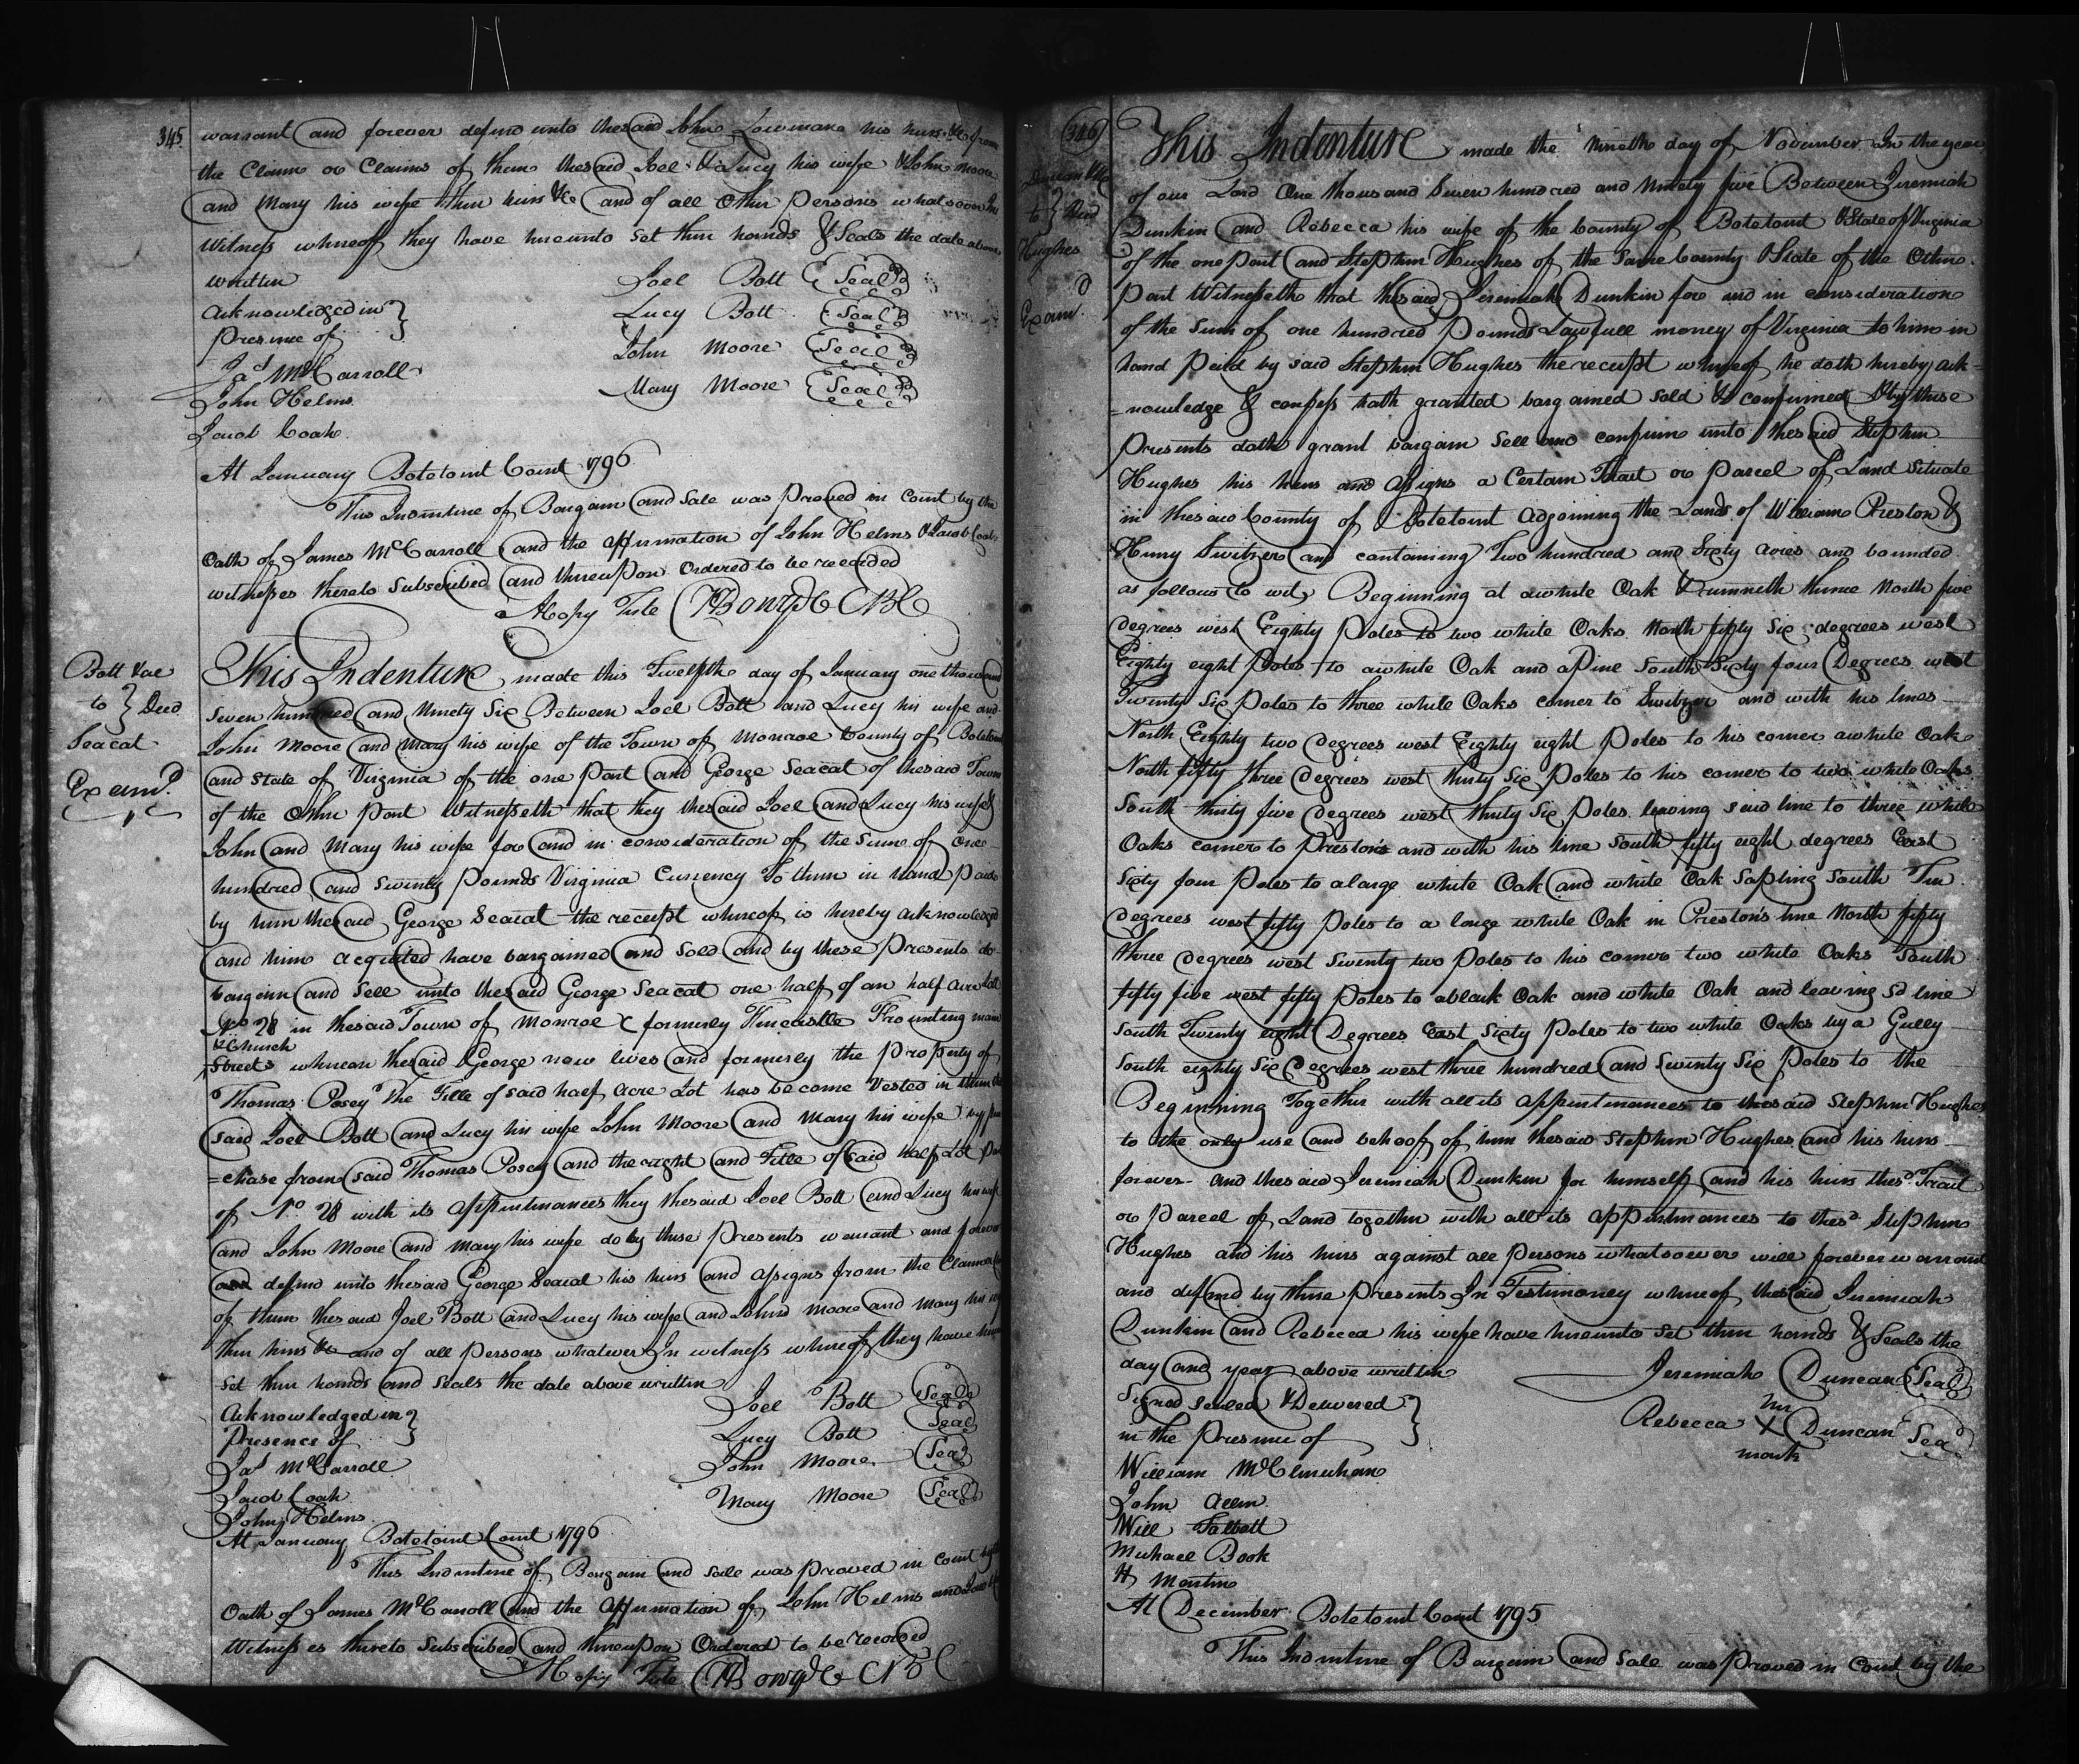 345.
warrant and forever defend unto the said John Lowmane his heirs &c from
the Claim or Claims of them the said Joel & Lucy his wife & John Moore
and Mary his wife their heirs &c and of all Other persons whatsoever In
Witness whereof they have hereunto Set their hands & Seals the date above
written
Joel Bott Seal
Acknowledged in
Lucy Bott Seal
presence of
John Moore Seal
Jas McCarroll
Mary Moore Seal
John Helms
Jacob Coah
At January Botetourt Court 1796
This Indenture of Bargain and Sale was Proved in Court by the
Oath of James McCarroll and the affirmation of John Helms & Jacob Coah
witnesses thereto Subscribed and thereupon Ordered to be recorded
A Copy Teste H Bowyer CBC
Bott &ac
to } Deed
Seacat
Examd.
This Indenture made this Twelfth day of January one thousand
Seven hundred and Ninety Six Between Joel Bott and Lucy his wife and
John Moore and Mary his wife of the Town of Monroe County of Botetourt
and State of Virginia of the one Part and George Seacat of the said Town
of the Other part Witnesseth that they the said Joel and Lucy his wife &
John and Mary his wife for and in consideration of the Sum of One
hundred and Seventy pounds Virginia Currency To them in hand paid
by him the said George Seacat the receipt whereof is hereby acknowledged
and him acquited have bargained and Sold and by these Presents do
bargain and Sell unto the said George Seacat one half of an half Acre Lott
No 28 in the said Town of Monroe formerly Fincastle Frounting main
& Church
Streets whereon the said George now lives and formerly the property of
Thomas Posey The Title of said half Acre Lot has become Vested in them the
said Joel Bott and Lucy his wife John Moore and Mary his wife by pur
=chase from said Thomas Posey and the right and Title of said half Lot part
of No. 28 with its appurtinances they the said Joel Bott and Lucy his wife
and John Moore and Mary his wife do by these presents warrant and forever
and defend unto the said George Seacat his heirs and assigns from the Claim
of them the said Joel Bott and Lucy his wife and John Moore and Mary his wife
their heirs &c and of all persons whatever In witness whereof they have
Set their hands and Seals the date above written
Joel Bott Seal
Acknowledged in
Lucy Bott Seal
Presence of
John Moore Seal
Jas McCarroll
Mary Moore Seal
Jacob Coah
John Helms
At January Botetourt Court 1796
This Indenture of Bargain and Sale was Proved in Court by the
Oath of James McCarroll and the Affirmation of John Helms and Jacob
Witnesses thereto Subscribed and thereupon Ordered to be recorded
A Copy Teste H Bowyer CBC
346
Duncan &c
to } Deed
Hughes
Examd.
This Indenture made the Nineth day of November In the year
of our Lord One thousand Seven hundred and Ninety five Between Jeremiah
Dunkin and Rebecca his wife of the County of Botetourt & State of Virginia
of the one part and Stephen Hughes of the Same County & State of the Other
part Witnesseth that the said Jeremiah Dunkin for and in consideration
of the Sum of one hundred Pounds Lawfull money of Virginia to him in
hand Paid by said Stephen Hughes the receipt whereof he doth hereby ack-
=nowledge & confess hath granted bargained Sold & confirmed & by these
presents doth grant bargain Sell and confirm unto the said Stephen
Hughes his heirs and Assigns a Certain Tract or Parcel of Land Situate
in the said County of Botetourt adjoining the Lands of William Preston &
Henry Switzer and containing Two hundred and Sixty acres and bounded
as follows to wit, Beginning at a white Oak & runneth thence North five
degrees west Eighty Poles to two white Oaks North fifty Six degrees west
Eighty eight Poles to a white Oak and a Pine South Sixty four Degrees west
Twenty Six Poles to three white Oaks corner to Switzer and with his lines
North Eighty two degrees west Eighty eight Poles to his corner a white Oak
North fifty three Degrees west thirty Six Poles to his corner to two white Oaks
South thirty five degrees west thirty Six Poles leaving said line to three white
Oaks corner to Preston's and with his line South fifty eight degrees East
Sixty four Poles to a large white Oak and white Oak Sapling South Ten
degrees west fifty Poles to a large white Oak in Preston's line North fifty
three degrees west Seventy two Poles to his corner two white Oaks South
fifty five west fifty Poles to a black Oak and white Oak and leaving Sd line
South Twenty eight Degrees East Sixty Poles to two white Oaks by a Gully
South eighty Six Degrees west three hundred and Seventy Six Poles to the
Beginning Together with all its appurtinances to the said Stephen Hughes
to the only use and behoof of him the said Stephen Hughes and his heirs
forever and the said Jeremiah Dunkin for himself and his heirs the sd Tract
or Parcel of Land together with all its appurtinances to the sd Stephen
Hughes and his heirs against all Persons whatsoever will forever warrant
and defend by these Presents In Testimoney whereof the said Jeremiah
Dunkin and Rebecca his wife have hereunto Set their hands & Seals the
day and year above written
Jeremiah Duncan Seal
Signed Sealed & Delivered
her
Rebecca X Duncan Seal
mark
in the Presence of
William McClenechan
John Allen
Will Talbott
Michael Book
H Martin
At December Botetourt Court 1795
This Indenture of Bargain and Sale was Proved in Court by the